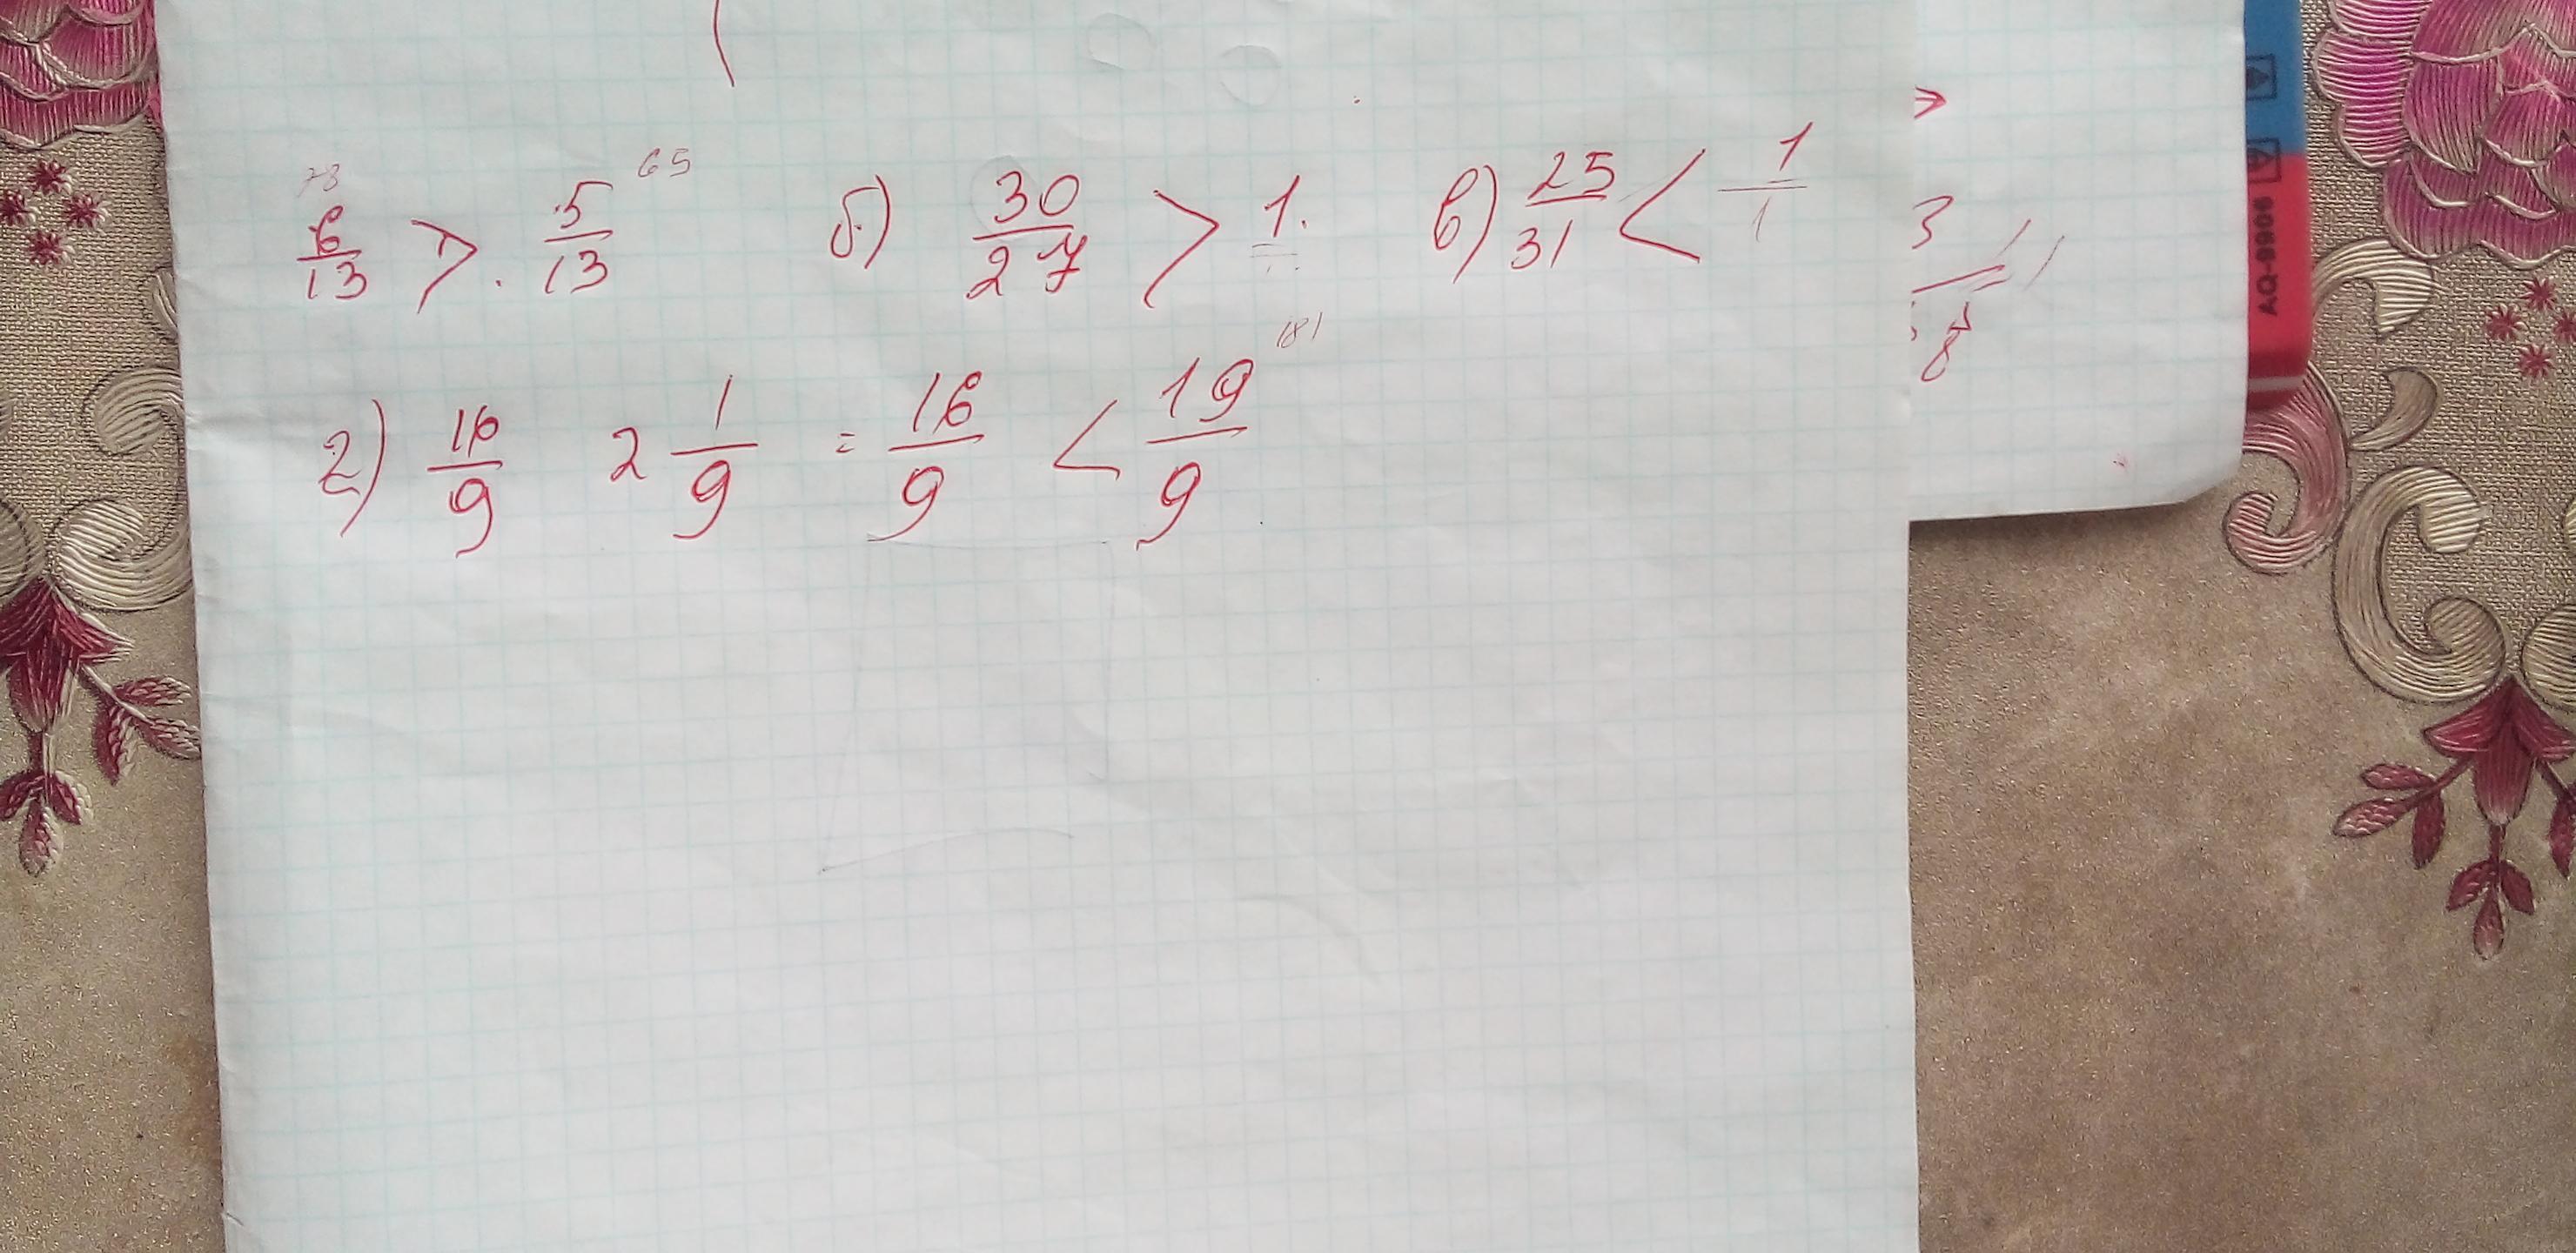 78 65
6/13 > 5/13 б) 30/27 > 1. в) 25/31 < 1/1
181
г) 16/9 2 1/9 = 16/9 < 19/9
3
8
AQ-9906